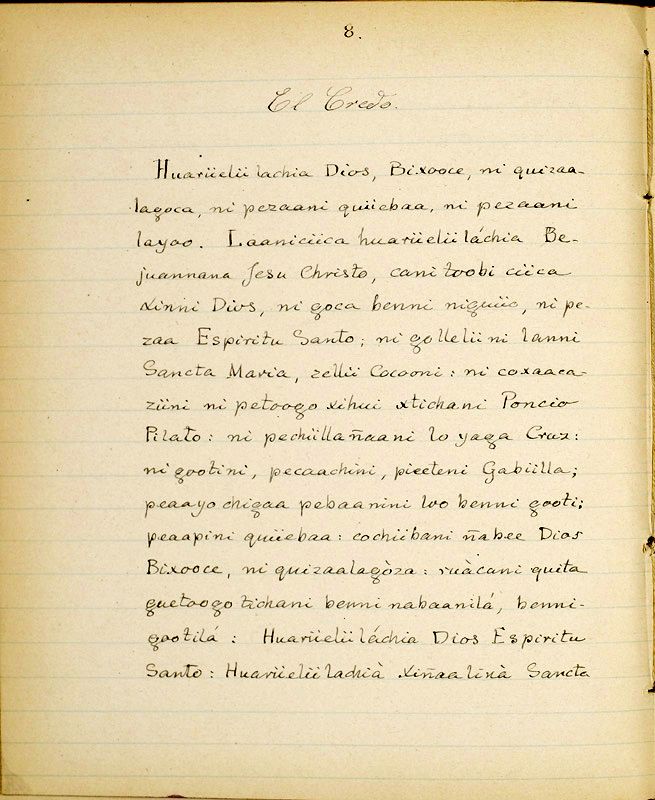 8.
El Credo.
Huariielii lachia Dios, Bixooce, ni quizaa-
lagoca, ni pezaani quiiebaa, ni pezaani
layoo. Laaniciica huariielii láchia Be-
juannana Jesu Christo, cani toobi ciica
xinni Dios, ni goca benni niguiio, ni pe-
zaa Espiritu Santo; ni gollelii ni lanni
Sancta Maria, zellii Cocooni: ni coxaaca-
ziini ni petoogo xihui xtichani Poncio
Pilato: ni pechiillañaani lo yaga Cruz:
ni gootini, pecaachini, pieeteni Gabiilla;
peaayo chigaa pebaanini loo benni gooti;
peaapini quiiebaa: cochiibani ñabee Dios
Bixooce, ni quizaalagòza: ruàcani quita
guetoogo tichani benni nabaanilá, benni-
gootilá: Huariielii láchia Dios Espiritu
Santo: Huariielii lachià xiñaa linà Sancta